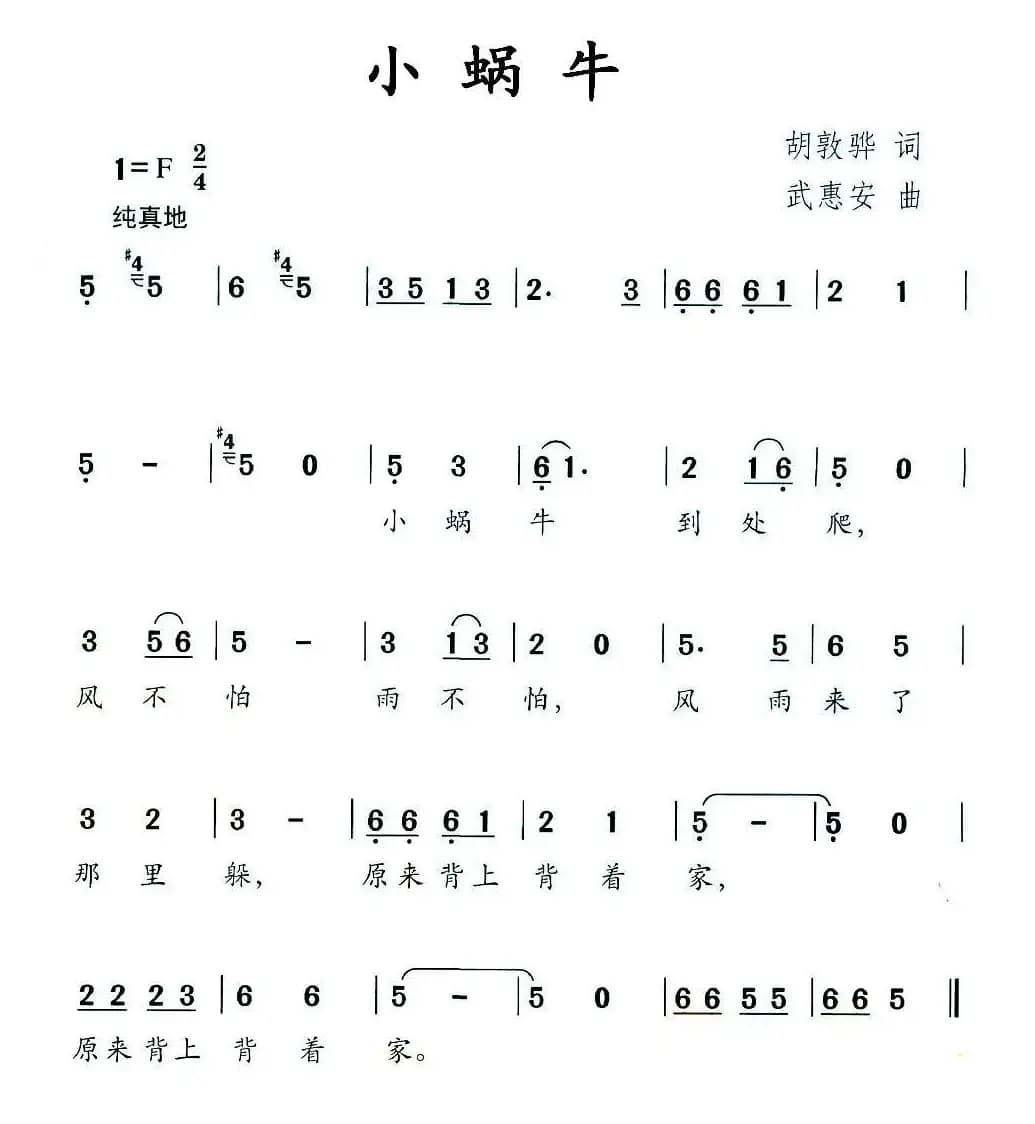 小蜗牛
胡敦骅 词
1=F 2/4
武惠安 曲
纯真地
5̣ #4 5 | 6 #4 5 | 3 5 1 3 | 2. 3 | 6̣ 6̣ 6̣ 1 | 2 1 |
5̣ - | #4 5 0 | 5̣ 3 | 6̣ 1. | 2 1 6̣ | 5̣ 0 |
小 蜗 牛 到 处 爬，
3 5 6 | 5 - | 3 1 3 | 2 0 | 5. 5 | 6 5 |
风 不 怕 雨 不 怕， 风 雨 来 了
3 2 | 3 - | 6̣ 6̣ 6̣ 1 | 2 1 | 5̣ - | 5̣ 0 |
那 里 躲， 原来背上 背 着 家，
2 2 2 3 | 6 6 | 5 - | 5 0 | 6 6 5 5 | 6 6 5 ‖
原来背上 背 着 家。